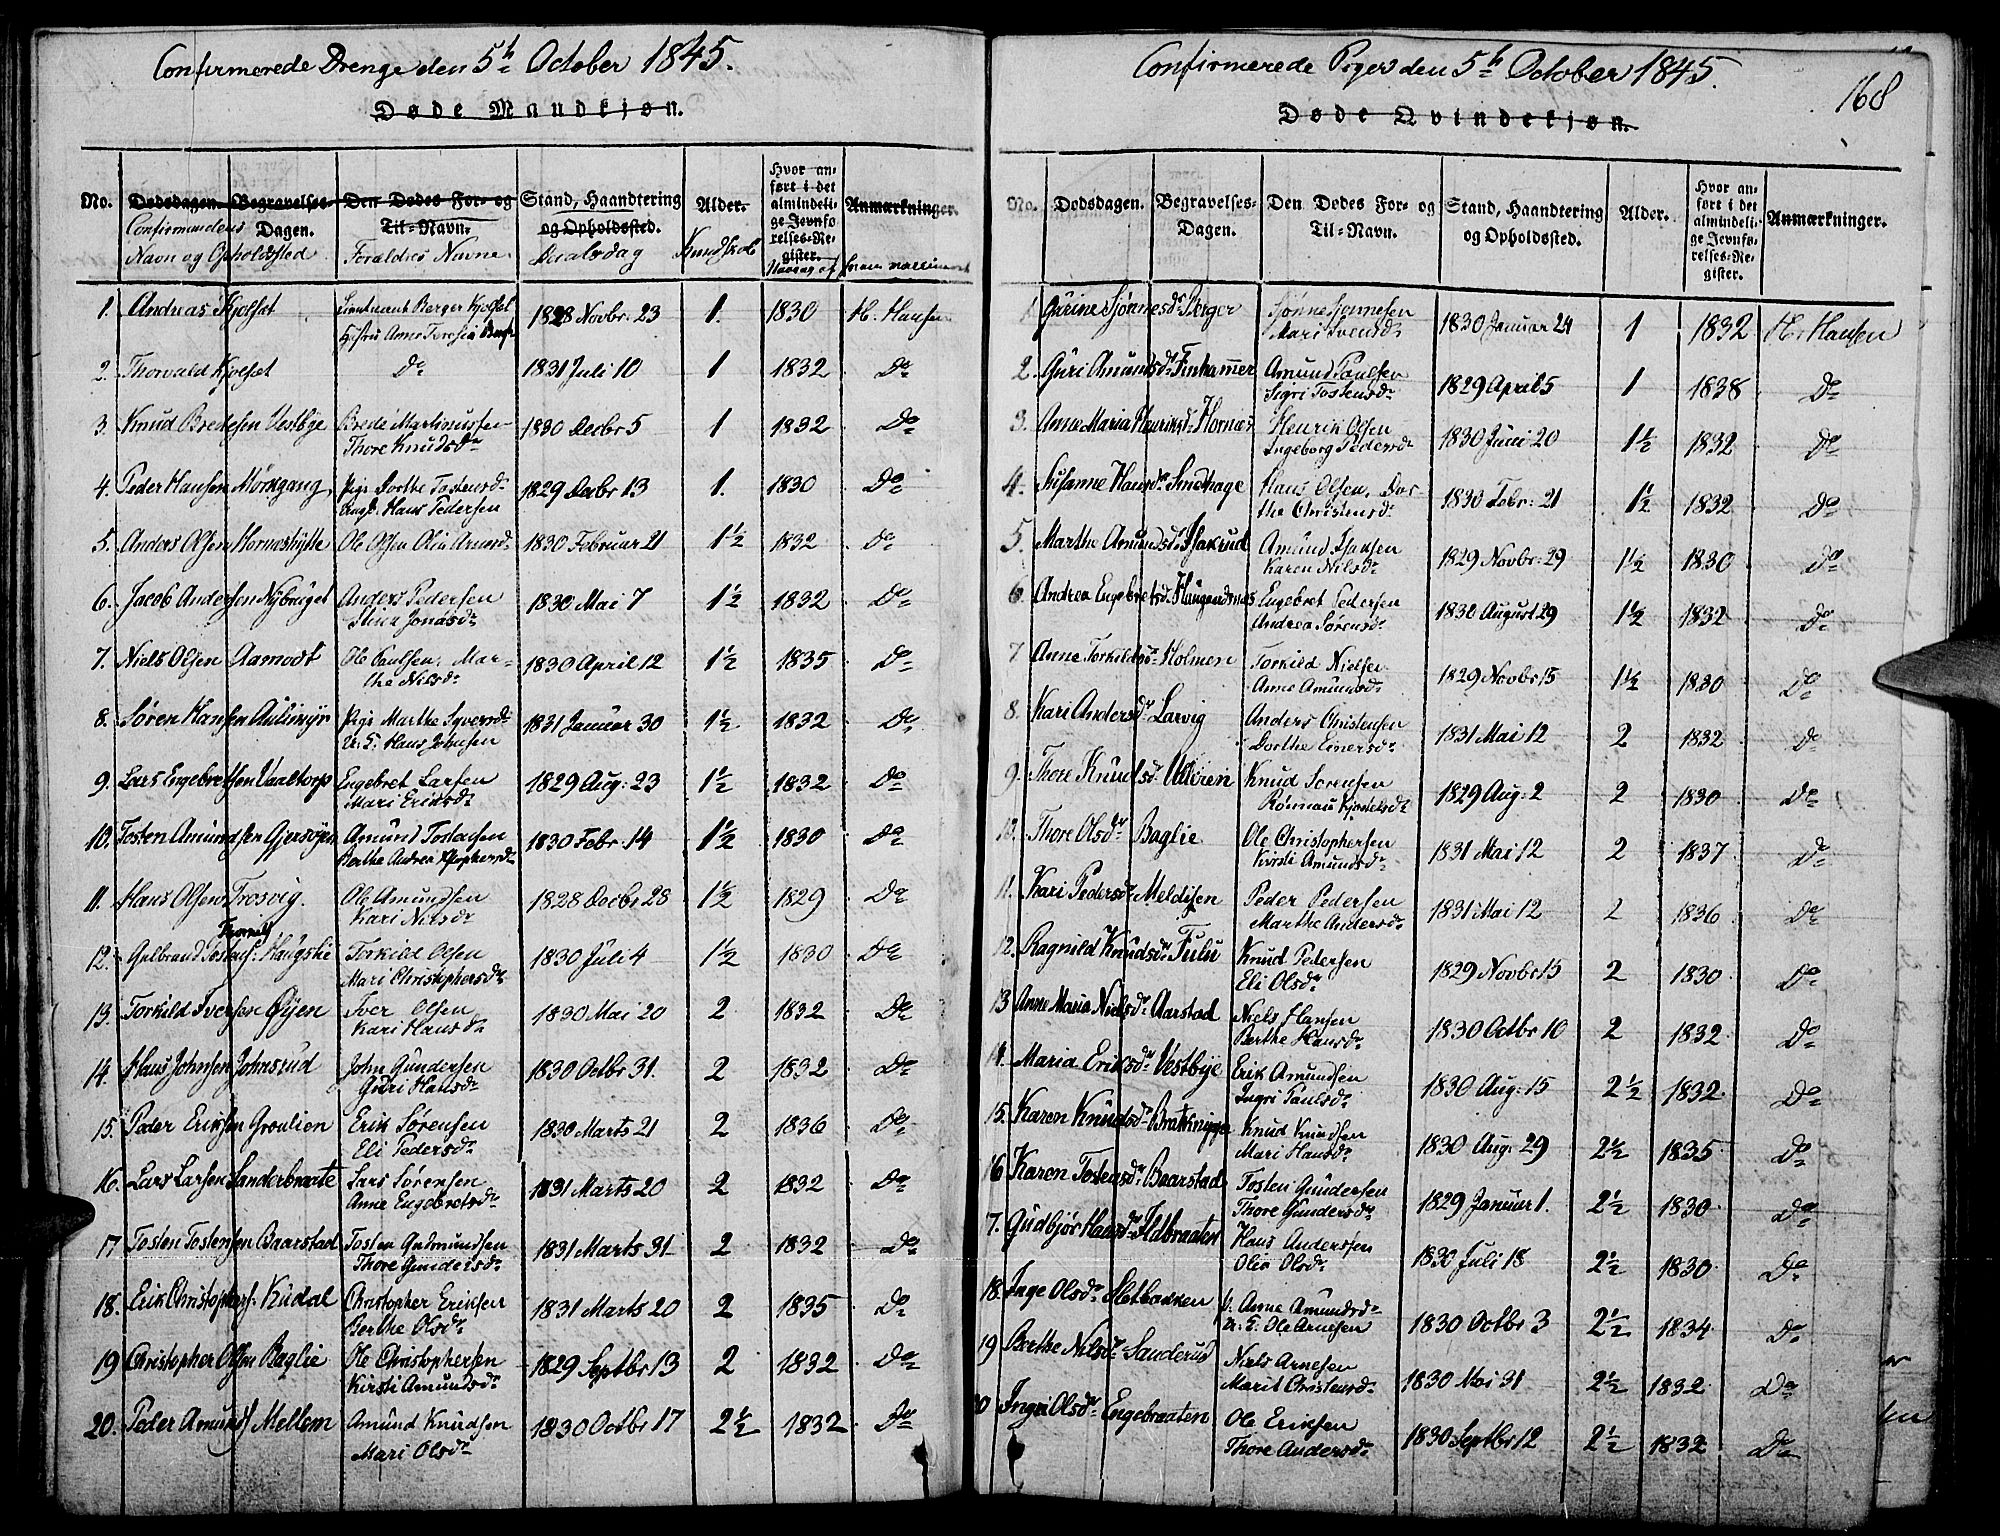 Confirmerede Drenge den 5te October 1845.
Døde Mandkjøn.
No. Dødsdagen. Begravelses-Dagen. Den Dødes For- og Til-Navn. Stand, Haandtering og Opholdssted. Alder. Hvor anført i det almindelige Jevnførelses-Register. Anmærkninger.
Confirmandens Navn og Opholdssted Forældres Navne
1. Andreas Kjølset Lieutnant Berger Kjølset 1828 Novbr. 23 1. 1830 H. Hansen
Hustru Anne Teresia
2. Thorvald Kjølset Do 1831 Juli 10 1 1832 Do
3. Knud Bredesen Vestbye Brede Martinussen 1830 Decbr 5 1 1832 Do
Thore Knudsdr
4. Peder Hansen Mørkgang Pige Dorthe Tostensdr 1829 Decbr 13 1. 1830 Do
Ungk. Hans Pedersen
5. Anders Olsen Hornæshytte Ole Olsen Olia Arnesdr 1830 Februar 21 1½ 1832 Do
6. Jacob Andersen Nybruget Anders Pedersen 1830 Mai 7 1½ 1832 Do
Stina Jonasdr
7. Niels Olsen Aamodt Ole Paulsen, Mar- 1830 April 12 1½ 1835 Do
the Nilsdr
8. Søren Hansen Pige Marthe Syversdr 1831 Januar 30 1½ 1832 Do
U. K. Hans Johnsen
9. Lars Engebretsen Vaaltorp Engebret Larsen 1829 Aug: 23 1½ 1832 Do
Mari Eriksdr
10. Tosten Amundsen Gjersøyen Amund Tostensen 1830 Febr. 14 1½ 1830 Do
Berthe Andrea
11. Hans Olsen Trosvig. Ole Amundsen 1828 Decbr 28 1½ 1829 Do
Kari Nilsdr
12. Gulbrand Haugslie Torkild Olsen 1830 Juli 4 1½ 1830 Do
Mari Christophersdr
13. Torkild Iversen Øyen Iver Olsen 1830 Mai 20 2 1832 Do
Kari Hansdr
14. Hans Johnsen Johnsrud John Gundersen 1830 Octbr 31. 2 1832 Do
Guri Hansdr
15. Peder Eriksen Groulien Erik Sørensen 1830 Marts 21 2 1836 Do
Eli Pedersdr
16. Lars Larsen Sanderbraate Lars Sørensen 1831 Marts 20 2 1832 Do
Anne Engebretsdr
17 Tosten Tostensen Baarstad Tosten Gudmundsen 1831 Marts 31 2 1832 Do
Thore Gundersdr
18. Erik Christophers. Kudal Christopher Eriksen 1831 Marts 20 2 1835 Do
Berthe Olsdr
19 Christopher Olsen Baglie Ole Christophersen 1829 Septbr 13 2 1832 Do
Kirsti Amundsdr
20. Peder Amunds. Mellem Amund Knudsen 1830 Octbr 17 2½ 1832 Do
Mari Olsdr
Confirmerede Piger den 5te October 1845.
168
Døde Qvindekjøn.
No. Dødsdagen. Begravelses-Dagen. Den Dødes For- og Til-Navn. Stand, Haandtering og Opholdssted. Alder. Hvor anført i det almindelige Jevnførelses-Register. Anmærkninger.
1. Gurine Sjønnesdr Berger Sjønne Sjennesen 1830 Januar 24 1 1832 H. Hansen
Mari Svendsdr
2. Guri Amundsdr Finhammer Amund Paulsen 1829 April 5 1 1838 Do
Sigri Tostensdr
3. Anne Maria Henriksdr Hornæs Henrik Olsen 1830 Juni 20 1½ 1832 Do
Ingeborg Pedersdr
4. Susanne Hansdr Smedhage Hans Olsen, Dor- 1830 Febr: 21 1½ 1832 Do
the Christensdr
5. Marthe Amundsdr Isakrud Amund Isaksen 1829 Novbr: 29 1½ 1830 Do
Karen Nilsdr
6 Andrea Engebretsd. Haugerudsnæs Engebret Pedersen 1830 August 29 1½ 1832 Do
Andrea Sørensdr
7. Anne Torkildsdr Holmen Torkild Nielsen 1829 Novbr 15 1½ 1830 Do
Anne Amundsdr
8. Kari Andersdr Larvig Anders Christensen 1831 Mai 12 2 1832 Do
Dorthe Einersdr
9. Thore Knudsdr Ulleren Knud Sørensen 1829 Aug: 2 2 1830 Do
Rønnau Kjostelsdr
10. Thore Olsdr Baglie Ole Christophersen 1831 Mai 12 2 1837 Do
Kirsti Amundsdr
11. Kari Pedersdr Meldisen Peder Pedersen 1831 Mai 12 2 1836 Do
Marthe Andersdr
12. Ragnild Knudsdr Fulu Knud Pedersen 1829 Novbr 15 2 1830 Do
Eli Olsdr
13 Anne Maria Nielsdr Aarstad Niels Hansen 1830 Octbr 10 2 1832 Do
Berthe Hansdr
14. Maria Eriksdr Vestbye Erik Amundsen 1830 Aug: 15 2½ 1832 Do
Ingri Paulsdr
15. Karen Knudsdr Knud Knudsen 1830 Aug: 29 2½ 1835 Do
Mari Hansdr
16 Karen Tostensdr Baarstad Tosten Gundersen 1829 Januar 1. 2½ 1830 Do
Thore Gundersdr
7. Gudbjør Hansdr Ildbraaten Hans Anderssen 1830 Juli 18 2½ 1830 Do
Olia Olsdr
18. Inge Olsdr Sletbakken P. Anne Amundsdr 1830 Octbr 3 2½ 1834 Do
U. K. Ole Arnesen
19 Berthe Nilsdr Sanderud Niels Arnesen 1830 Mai 31 2½ 1832 Do
Marit Christensdr
20 Ingri Olsdr Engebraaten Ole Eriksen 1830 Septbr 12 2½ 1832 Do
Thore Andersdr